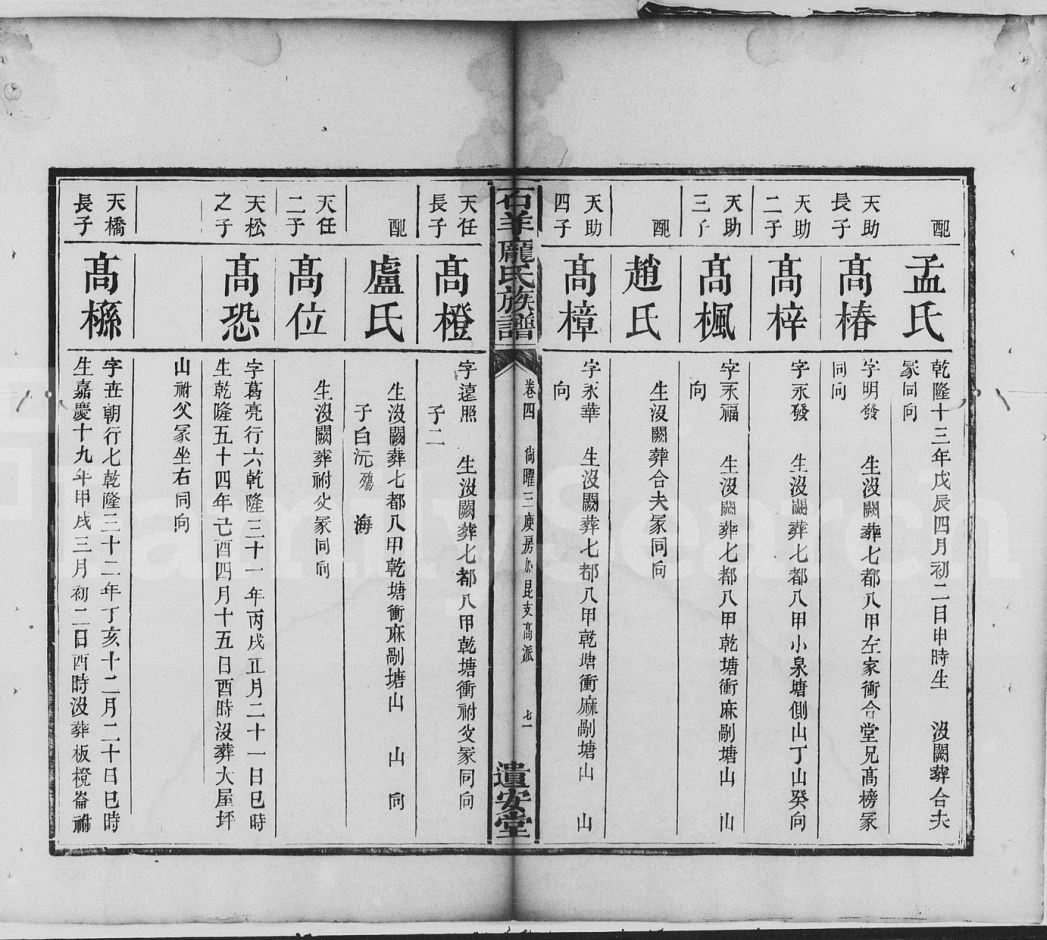 配
孟氏
乾隆十三年戊辰四月初二日申時生 沒闕葬合夫
冢同向
天助
長子
髙椿
字明發 生沒闕葬七都八甲左家衝合堂兄髙榜冢
同向
天助
二子
髙梓
字永發 生沒闕葬七都八甲小泉塘側山丁山癸向
天助
三子
髙楓
字永福 生沒闕葬七都八甲乾塘衝麻剮塘山 山
向
配
趙氏
生沒闕葬合夫冢同向
天助
四子
髙樟
字永華 生沒闕葬七都八甲乾塘衝麻剮塘山 山
向
石羊龐氏族譜
卷四 尙曜三庚房 昆支高派 七一
遺安堂
天任
長子
髙橙
字遠照 生沒闕葬七都八甲乾塘衝祔父冢同向
子二
配
盧氏
生沒闕葬七都八甲乾塘衝麻剮塘山 山 向
子白沅殤 海
天任
二子
髙位
生沒闕葬祔父冢同向
天松
之子
髙恐
字葛亮行六乾隆三十一年丙戌正月二十一日巳時
生乾隆五十四年己酉四月十五日酉時沒葬大屋坪
山祔父冢坐右同向
天橋
長子
髙㮙
字丗朝行七乾隆三十二年丁亥十二月二十日巳時
生嘉慶十九年甲戌三月初二日酉時沒葬板櫈崙祔
FamilySearch